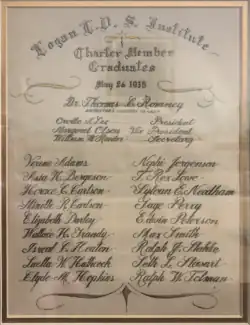 Logan L.D.S. Institute
Charter Member
Graduates
May 26 1935
Dr. Thomas C. Romney
Orville S. Lee President
Margaret Olsen Vice President
William W. Secretary
Verna Adams
Asia H. Bergeson
Horace C. Carlson
Minnie R. Carlson
Elizabeth Darley
Wallace H. Grandy
Arvel L. Heaton
Luella W. Hathock
Clyde M. Hopkins
Nephi Jorgensen
F. Rex Love
Sylvan E. Needham
Faye Perry
Edwin Peterson
Max Smith
Ralph J.
Seth L. Stewart
Ralph W. Tolman